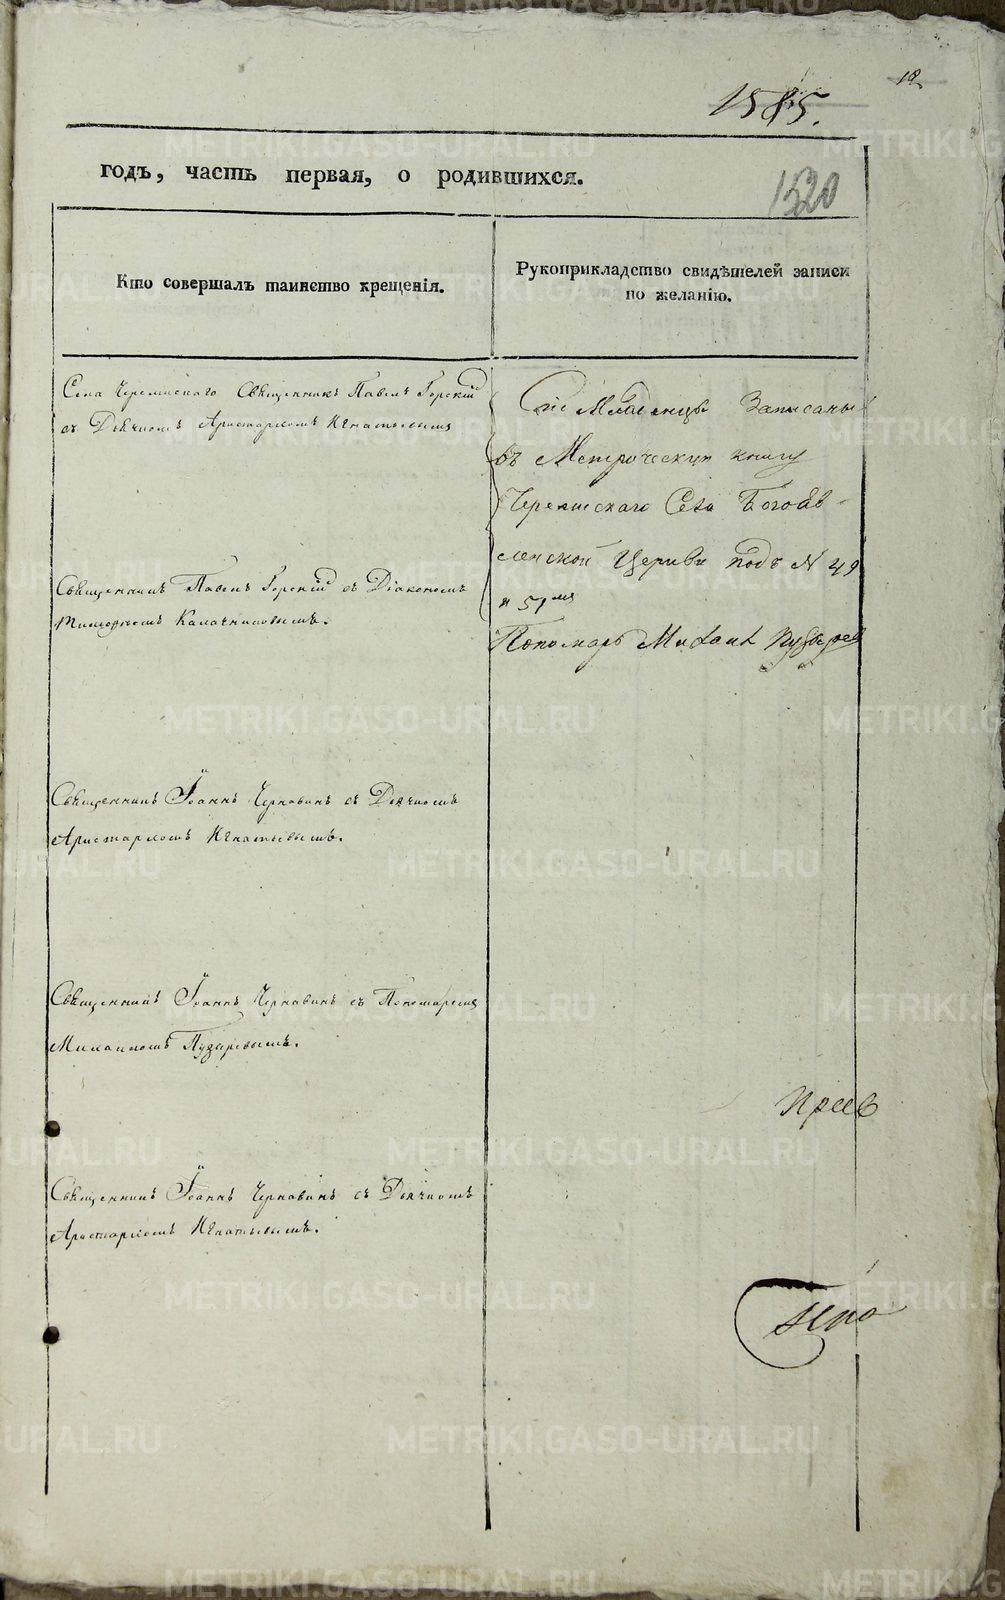 18
1585.
годъ, часть первая, о родившихся.
1520
Кто совершалъ таинство крещенія.
Рукоприкладство свидѣтелей записи
по желанію.
Села Черемисскаго Священникъ Павелъ Горскій
съ Дьячкомъ Аристархомъ Игнатьевымъ
Священникъ Павелъ Горскій съ Діакономъ
Тимофеемъ Калачниковымъ.
Священникъ Іоаннъ Чернавинъ съ Дьячкомъ
Аристархомъ Игнатьевымъ.
Священникъ Іоаннъ Чернавинъ съ Пономаремъ
Михаиломъ Пузыревымъ.
Священникъ Іоаннъ Чернавинъ съ Дьячкомъ
Аристархомъ Игнатьевымъ.
Сіе Младенцы Записаны
въ Метрическую книгу
Черемисскаго Села Богояв-
ленской Церкви подъ N 49
и 51мъ
Пономарь Михаилъ Пузыревъ
METRIKI.GASO-URAL.RU